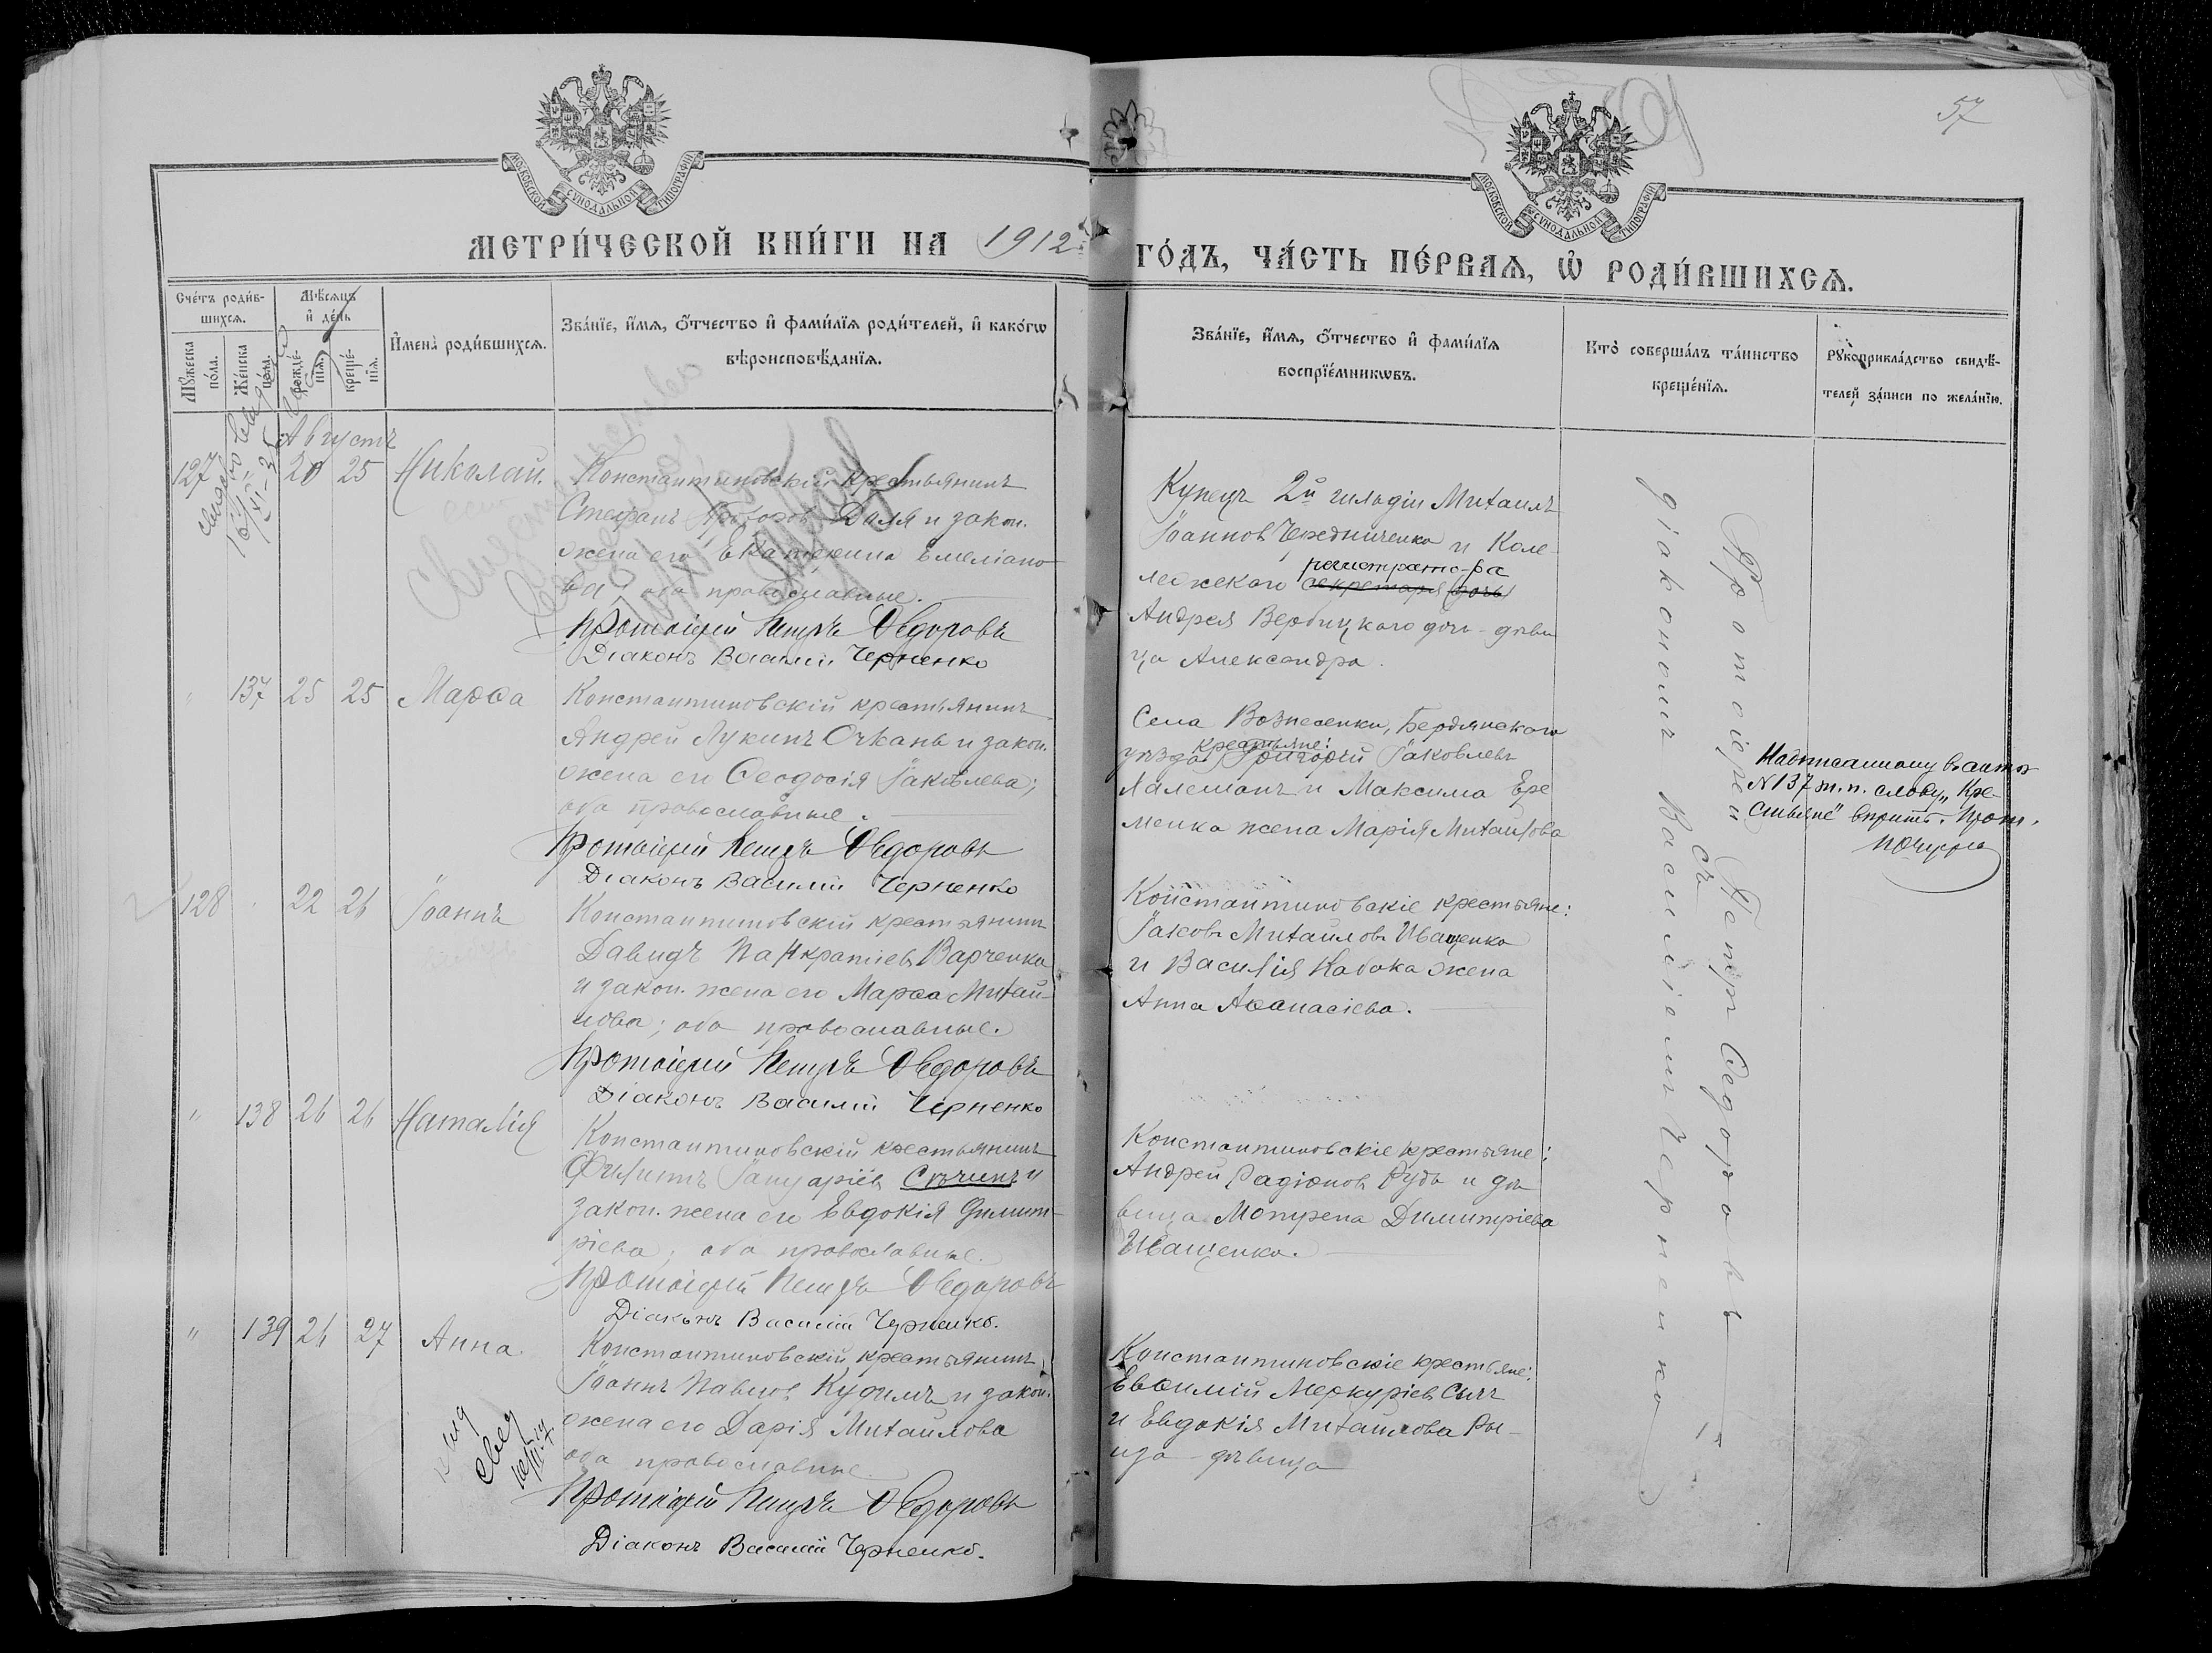 57
МОСКОВСКОЙ СѴНОДАЛЬНОЙ ТИПОГРАФІИ
МОСКОВСКОЙ СѴНОДАЛЬНОЙ ТИПОГРАФІИ
МЕТРИ́ЧЕСКОЙ КНИ́ГИ НА 1912
ГО́ДЪ, ЧА́СТЬ ПЕ́РВАѦ, Ѡ҆ РОДИ́ВШИХСѦ.
Сче́тъ роди́в-
шихсѧ.
Мꙋ́жеска по́ла.
Же́нска по́ла.
Мѣ́сѧцъ
и҆ де́нь
рожде́-
нїѧ.
креще́-
нїѧ.
И҆мена̀ роди́вшихсѧ.
Зва́нїе, и҆́мѧ, ѻ҆́тчество и҆ фами́лїѧ роди́телей, и҆ како́гѡ
вѣроисповѣ́данїѧ.
Зва́нїе, и҆́мѧ, ѻ҆́тчество и҆ фами́лїѧ
воспрїе́мникѡвъ.
Кто̀ соверша́лъ та́инство
креще́нїѧ.
Рꙋкоприкла́дство свидѣ́-
телей за́писи по жела́нїю.
Августъ
127 20 25 Николай.
Константиновскій крестьянинъ
Стефанъ Даля и закон.
жена его Екатерина Емеліано-
ва; оба православные.
Протоіерей Петръ Ѳедоровъ
Діаконъ Василій Черненко
Купецъ 2й гильдіи Михаилъ
Іоанновъ Чередниченко и Коле-
регистрато-ра
леджскаго секретаря дочь
Андрея Вербицкаго дочь - дѣви
ца Александра.
" 137 25 25 Марѳа
Константиновскій крестьянинъ
Андрей Лукинъ и закон.
жена его Ѳеодосія Іаковлева;
оба православные.
Протоіерей Петръ Ѳедоровъ
Діаконъ Василій Черненко
Села Вознесенки, Бердянскаго
крестьяне:
уѣзда Григорій Іаковлевъ
и Максима Ере
менка жена Марія Михайлова
Надписанному въ актѣ
№ 137 т.п. слову „Кре-
стьяне" вѣрить. Прот.
128 22 26 Іоаннъ
Константиновскій крестьянинъ
Давидъ Панкратіевъ Варченко
и закон. жена его Марѳа Михай-
лова; оба православные.
Протоіерей Петръ Ѳедоровъ
Діаконъ Василій Черненко
Константиновскіе крестьяне:
Іаковъ Михайловъ Иващенко
и Василія Кабака жена
Анна Аѳанасіева.
" 138 26 26 Наталія
Константиновскій крестьянинъ
Филиппъ Іануаріевъ Сѣчинъ и
закон. жена его Евдокія Димит-
ріева; оба православные.
Протоіерей Петръ Ѳедоровъ
Діаконъ Василій Черненко.
Константиновскіе крестьяне:
Андрей Радіоновъ Рудь и дѣ
вица Мотрена Димитріева
Иващенко.
" 139 26 27 Анна
Константиновскій крестьянинъ
Іоаннъ Павловъ Кудимъ и закон.
жена его Дарія Михайлова
оба православные
Протоіерей Петръ Ѳедоровъ
Діаконъ Василій Черненко.
Константиновскіе крестьяне:
Евѳимій Меркуріевъ Сычъ
и Евдокія Михайлова Ры-
ца дѣвица
Протоіерей Петръ Ѳедоровъ
съ
діакономъ Василіемъ Черненко